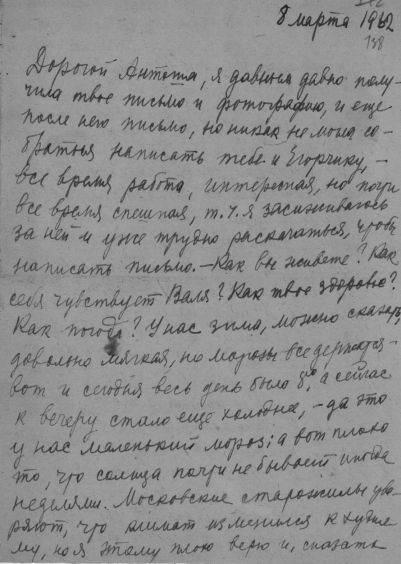 8 марта 1962
138
Дорогой Антоша, я давным давно полу-
чила твое письмо и фотографию, и еще
после него письмо, но никак не могла со-
браться написать тебе и Егорчику, –
все время работа, интересная, но почти
все время спешная, т.ч. я засиживаюсь
за ней и уже трудно раскачаться, чтобы
написать письмо. – Как вы живете? Как
себя чувствует Валя? Как твое здоровье?
Как погода? У нас зима, можно сказать,
довольно мягкая, но морозы все держатся –
вот и сегодня весь день было 8°, а сейчас
к вечеру стало еще холоднее, – да это
у нас маленький мороз; а вот плохо
то, что солнца почти не бывает иногда
неделями. Московские старожилы уве-
ряют, что климат изменился к худше-
му, но я этому плохо верю и, сказать